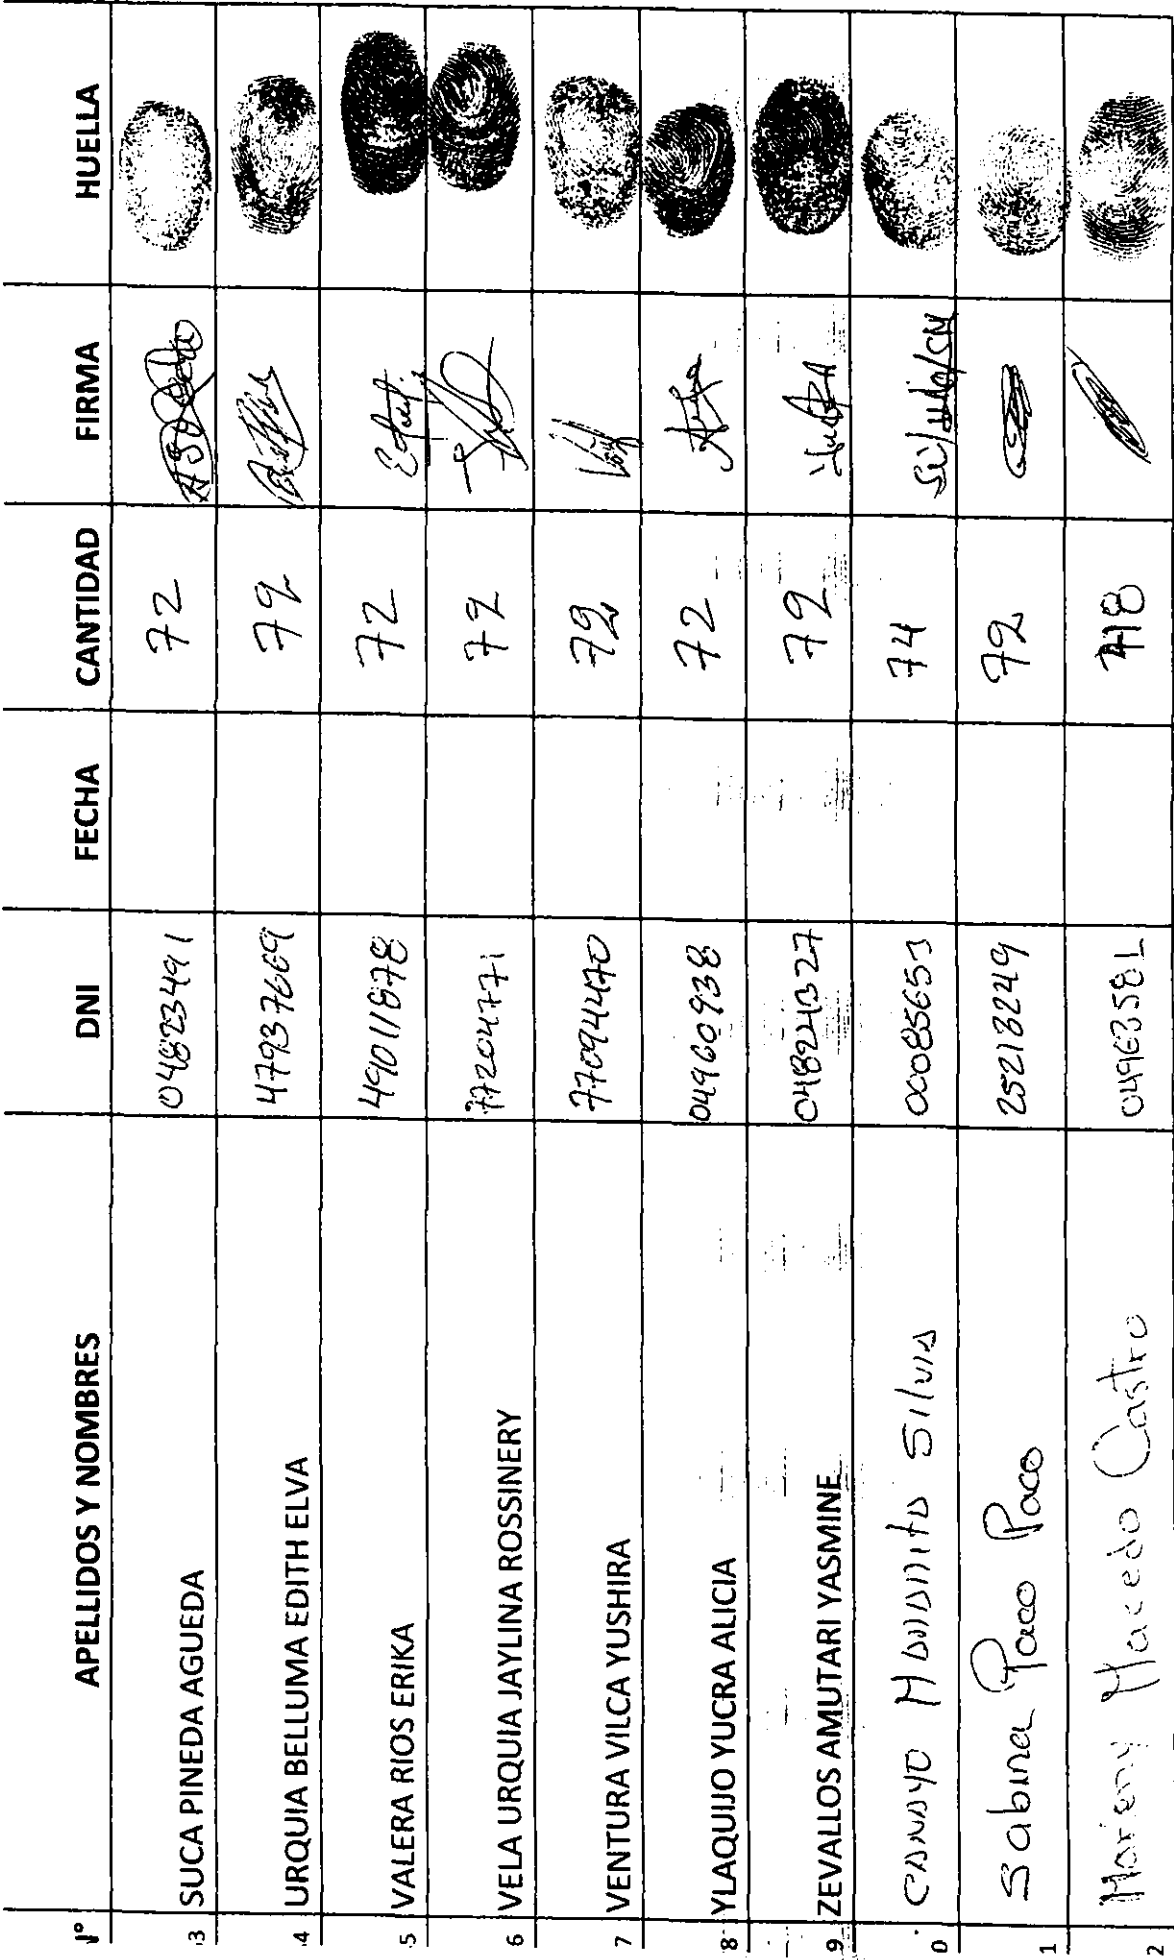 N° APELLIDOS Y NOMBRES DNI FECHA CANTIDAD FIRMA HUELLA
3 SUCA PINEDA AGUEDA 04823491 72
4 URQUIA BELLUMA EDITH ELVA 47937669 72
5 VALERA RIOS ERIKA 49011878 72
6 VELA URQUIA JAYLINA ROSSINERY 77204771 72
7 VENTURA VILCA YUSHIRA 77094470 72
8 YLAQUIJO YUCRA ALICIA 04960938 72
9 ZEVALLOS AMUTARI YASMINE 04824327 72
0 CANAYO MANANITA SILVIA 00085653 74
1 Sabina Paco Paco 25213249 72
2 Mareny Macedo Castro 04963581